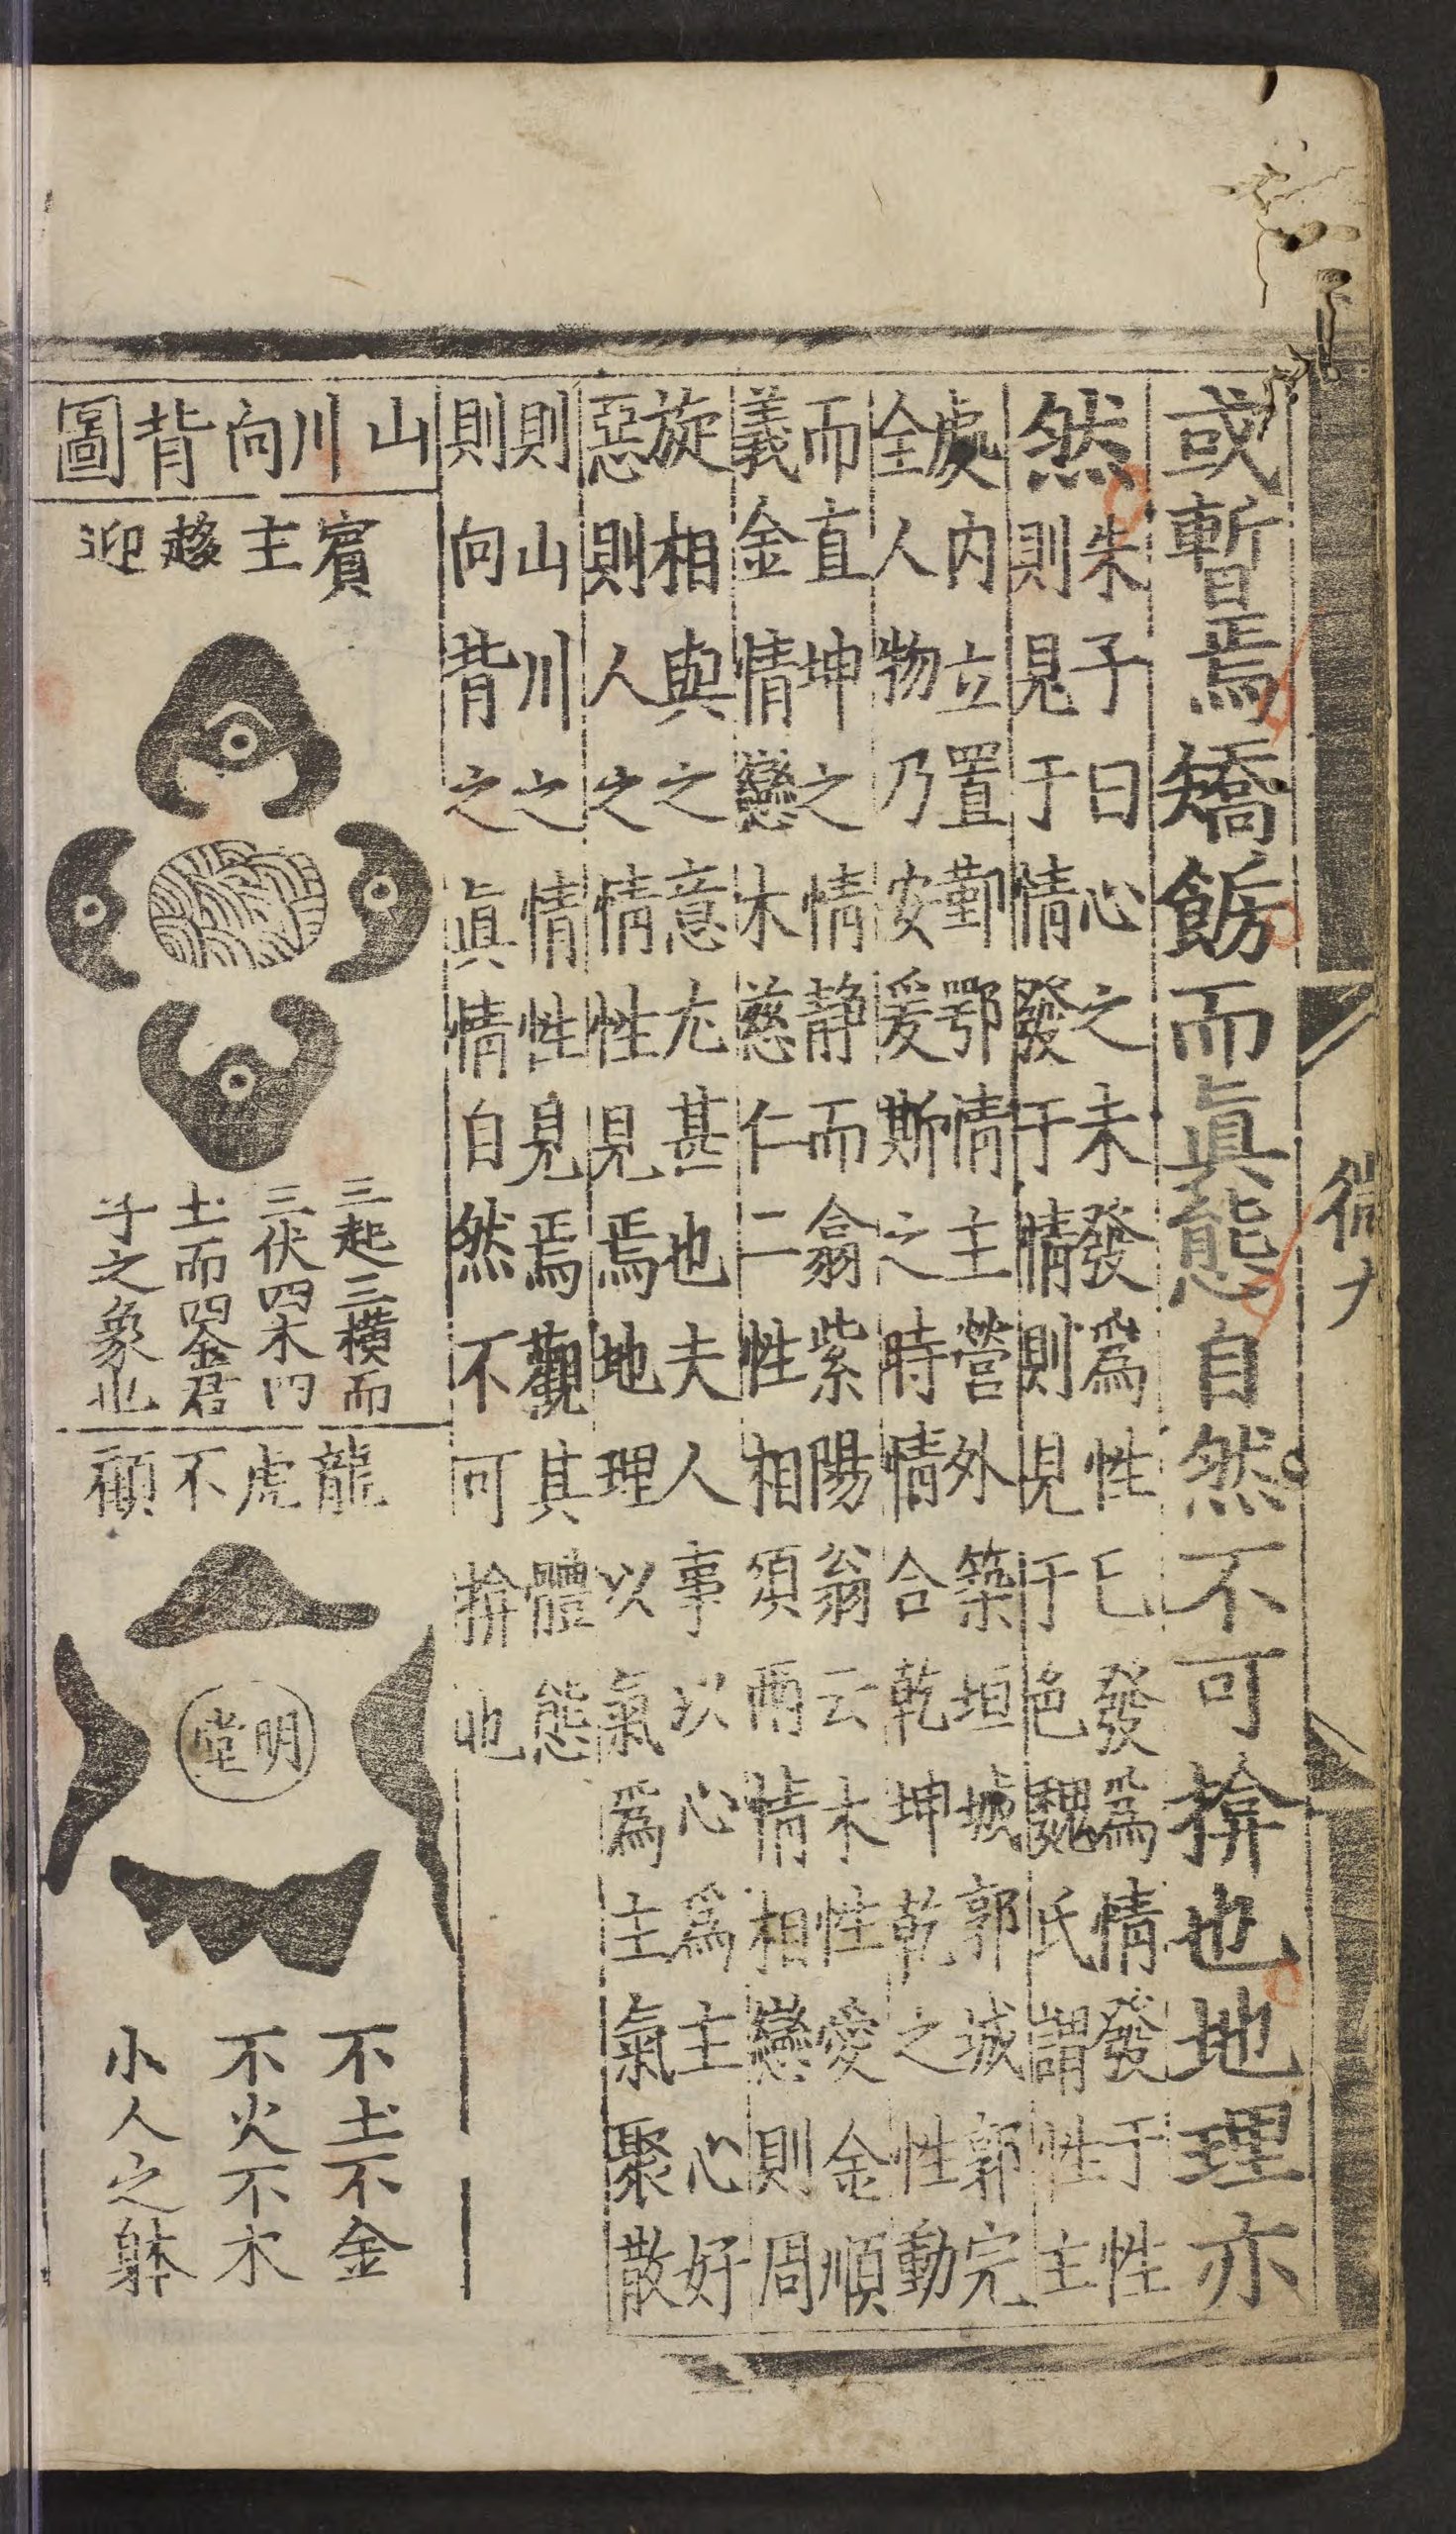 或暫焉矯飾而眞態自然不可揜也地理亦
然
朱子曰心之未發爲性已發爲情發于性
則見于情發于情則見于色魏氏謂性主
處内立置鄞鄂情主營外築垣城郭城郭完
全人物乃安爰斯之時情合乾坤乾之性動
而直坤之情静而翕紫陽翁云木性愛金順
義金情戀木慈仁二性相須兩情相戀則周
旋相與之意尤甚也夫人事以心爲主心好
惡則人之情性見焉地理以氣爲主氣聚散
則山川之情性見焉觀其體態
則向背之眞情自然不可揜也
山川向背圖
賓主趍迎
三起三橫而
三伏四木四
土而四金君
子之象也
龍虎不顧
明堂
不土不金
不火不木
小人之躰